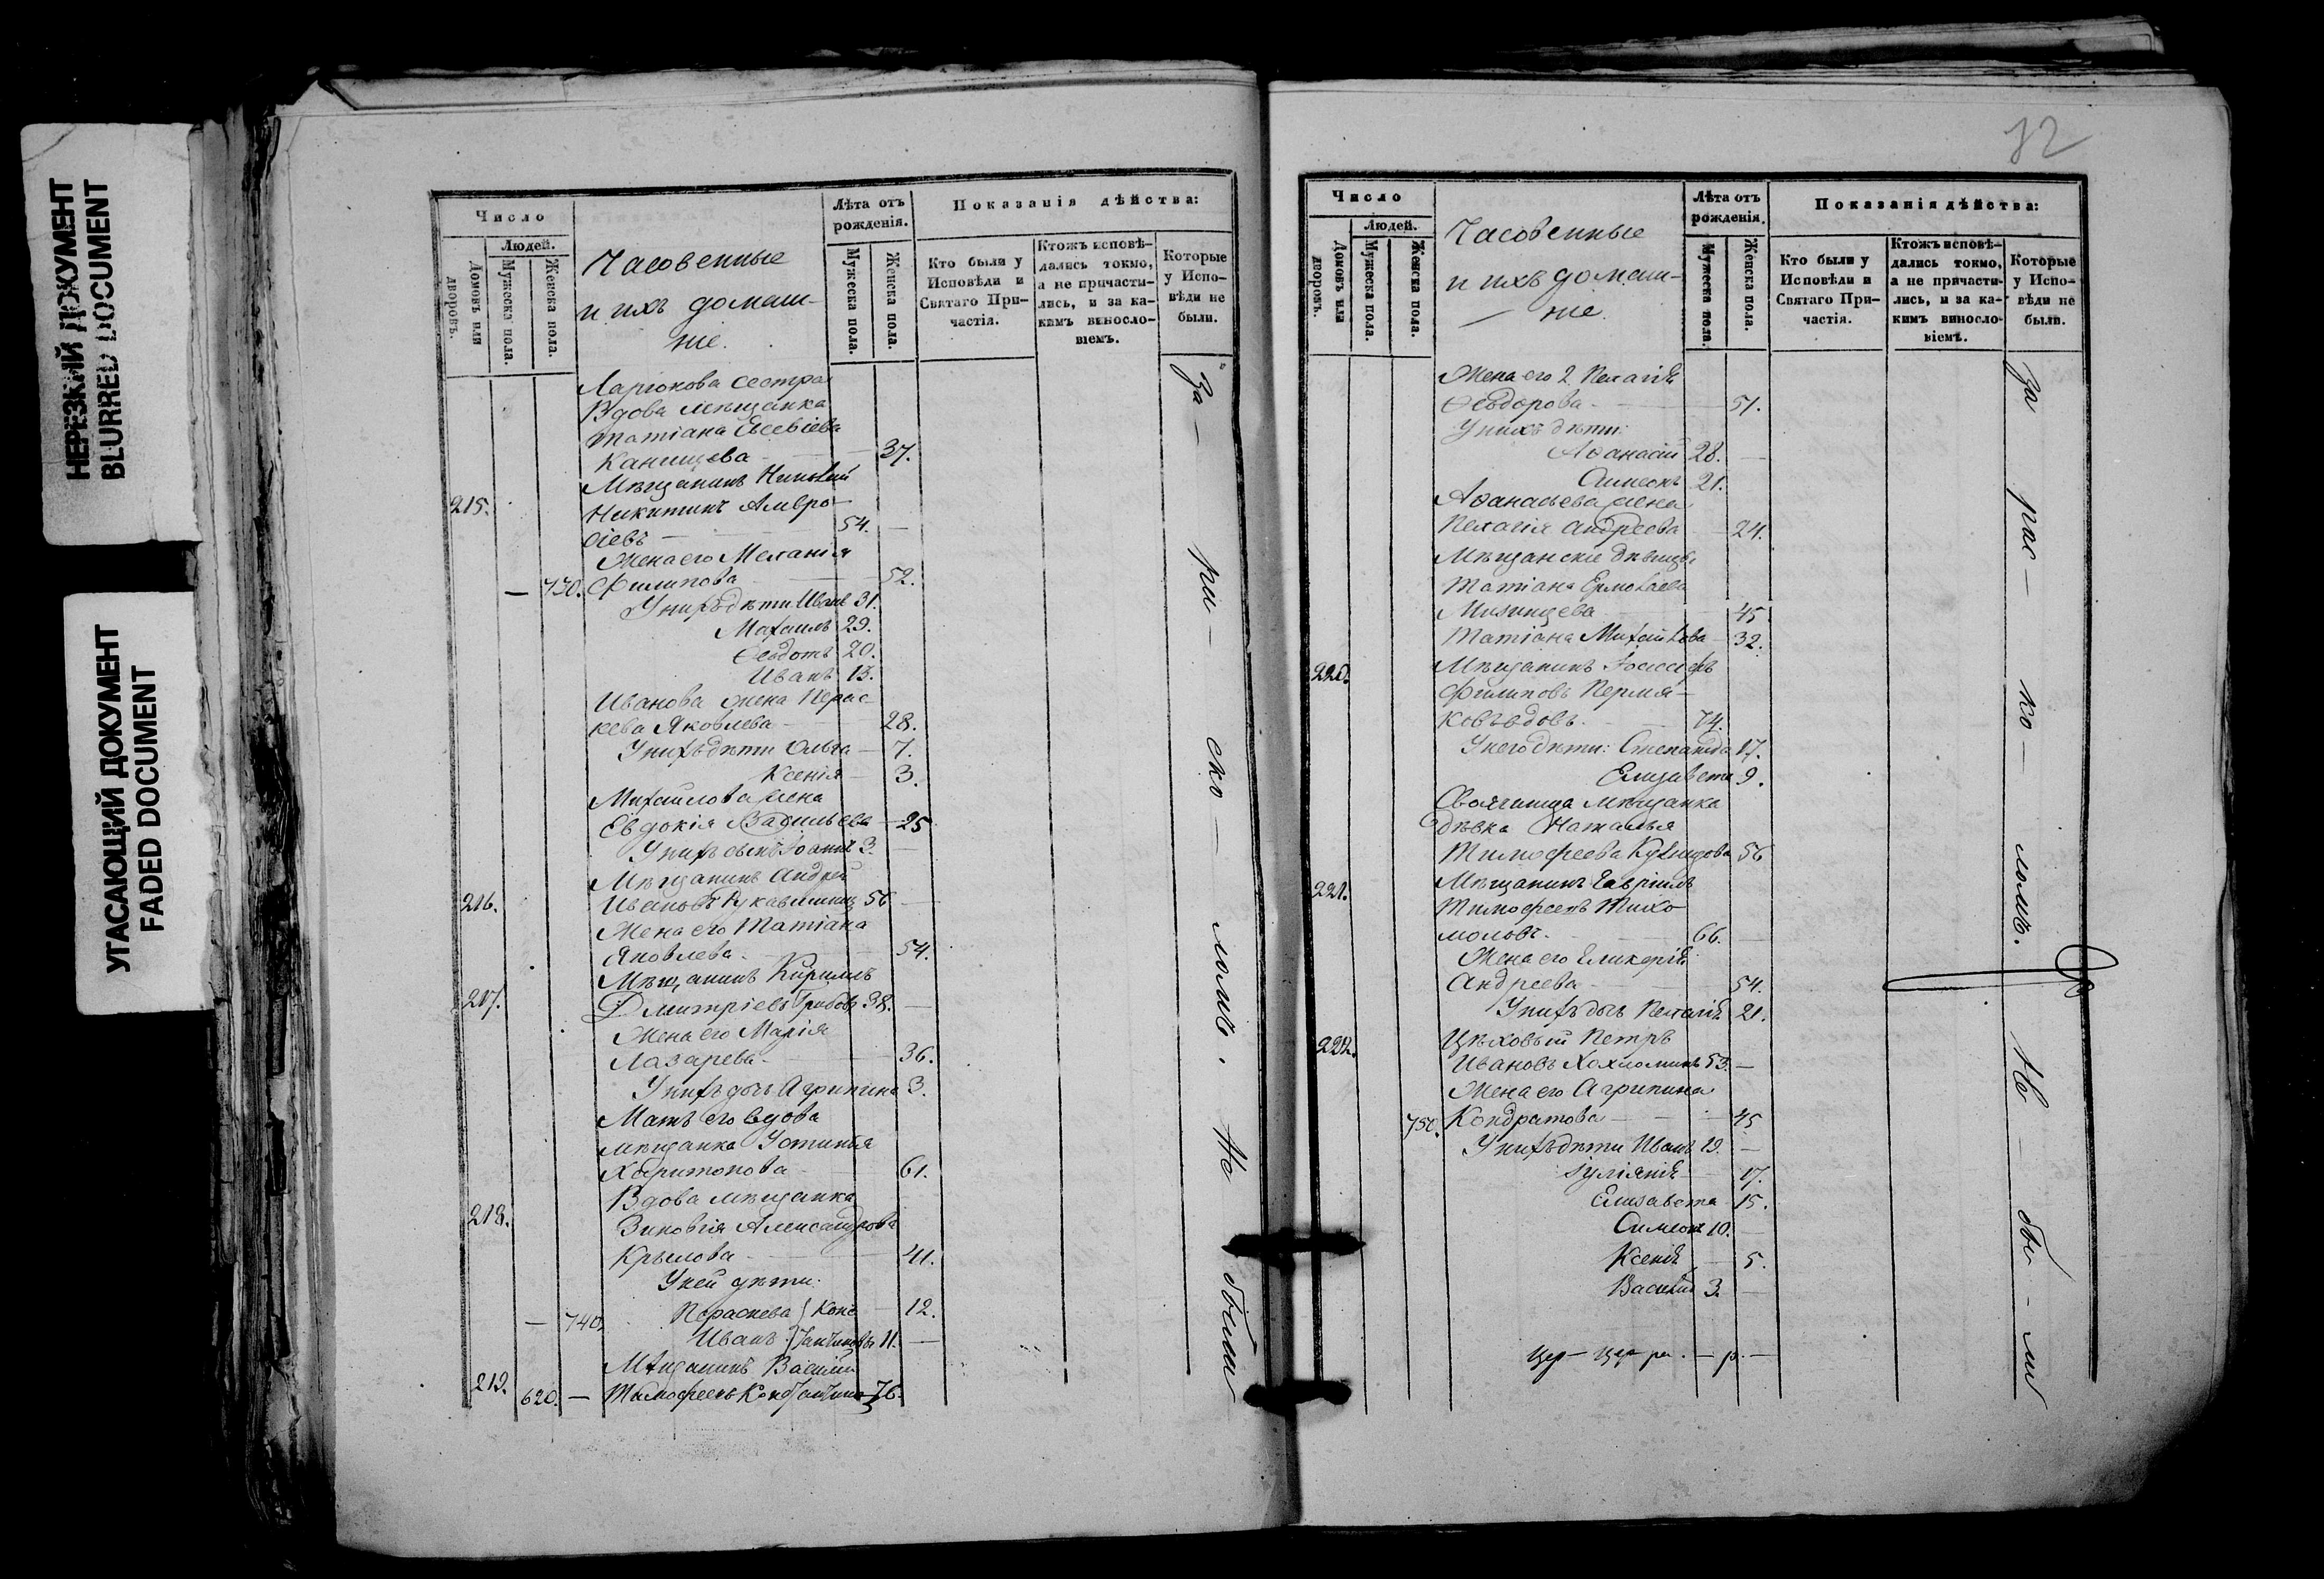 НЕРЕЗКИЙ ДОКУМЕНТ
BLURRED DOCUMENT
УГАСАЮЩИЙ ДОКУМЕНТ
FADED DOCUMENT
Число
Людей.
Домовъ или дворовъ.
Мужеска пола.
Женска пола.
Часовенные
и ихъ домаш-
ніе.
Лѣта отъ рожденія.
Мужеска пола.
Женска пола.
Показанія дѣйства:
Кто были у Исповѣди и Святаго При-частія.
Ктожъ исповѣ-дались токмо, а не причасти-лись, и за ка-кимъ винословіемъ.
Которые у Испо-вѣди не были.
сестра
Вдова мѣщанка
Татіана Евсевіева
37.
Мѣщанинъ
215. Никитинъ Амвро-
сіевъ 54.
Жена его Меланія
730. Филипова 52.
У нихъ дѣти Иванъ 31.
Михаилъ 29.
Ѳеодотъ 20.
Иванъ 13.
Иванова жена Перас-
кева Яковлева 28.
У нихъ дѣти Ольга 7.
Ксенія 3.
Михайлова жена
Евдокія Васильева 25
У нихъ сынъ Іоаннъ 3.
Мѣщанинъ Андрей
216. Ивановъ Рукавишник 56
Жена его Татіана
Яковлева 54.
Мѣщанинъ Кирилъ
217. Дмитріевъ Грибовъ 38.
Жена его Марія
Лазарева 36.
У нихъ дочь Агрипина 3.
Мать его вдова
мѣщанка Устинья
Харитонова 61.
Вдова мѣщанка
218. Зиновія Александрова
Крылова 41.
У ней дѣти:
740. Пераскева Конс 12.
Иванъ тантиновы 11.
Мѣщанинъ Василій
219. 620. Тимофеевъ 76.
За - ско - ломъ. Не были
32
Число
Людей.
Домовъ или дворовъ.
Мужеска пола.
Женска пола.
Часовенные
и ихъ домаш-
ніе.
Лѣта отъ рожденія.
Мужеска пола.
Женска пола.
Показанія дѣйства:
Кто были у Исповѣди и Святаго При-частія.
Ктожъ исповѣ-дались токмо, а не причасти-лись, и за ка-кимъ винословіемъ.
Которые у Испо-вѣди не были.
Жена его 2. Пелагія
Ѳеодорова 51.
У нихъ дѣти:
Аѳанасій 28.
Симеонъ 21.
Аѳанасьева жена
Пелагія Андреева 24.
Мѣщанскіе дѣвицы
Татіана Ермолаева
45
Татіана Михайлова 32.
220. Мѣщанинъ Іосифъ
Филиповъ Пермя-
ковъ вдовъ. 74.
У него дѣти: Степанида 17.
Елизавета 9.
Своячиница мѣщанка
дѣвка Наталья
Тимофеева 56
221. Мѣщанинъ Гавріилъ
Тимофеевъ Тихо-
моловъ. 66.
Жена его Гликерія
Андреева 54.
У нихъ дочь Пелагія 21.
222. Цѣховый Петръ
Ивановъ 53.
Жена его Агрипина
750. Кондратова 45
У нихъ дѣти Иванъ 19.
Іуліянія 17.
Елизавета 15.
Симеонъ 10.
Ксенія 5.
Василій 3.
За рас - ко - ломъ. Не - бы - ли